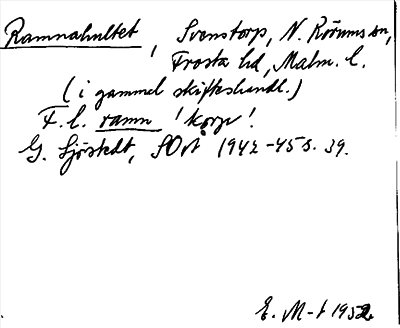 Ramnahultet, Svenstorp, N. Rörums sn,
Frosta hd, Malm. l.
(i gammal skifteshandl.)
F. l. ramn 'korp'.
G. Sjöstedt, SOrt 1942-45 s. 39.
E. M-t 1952